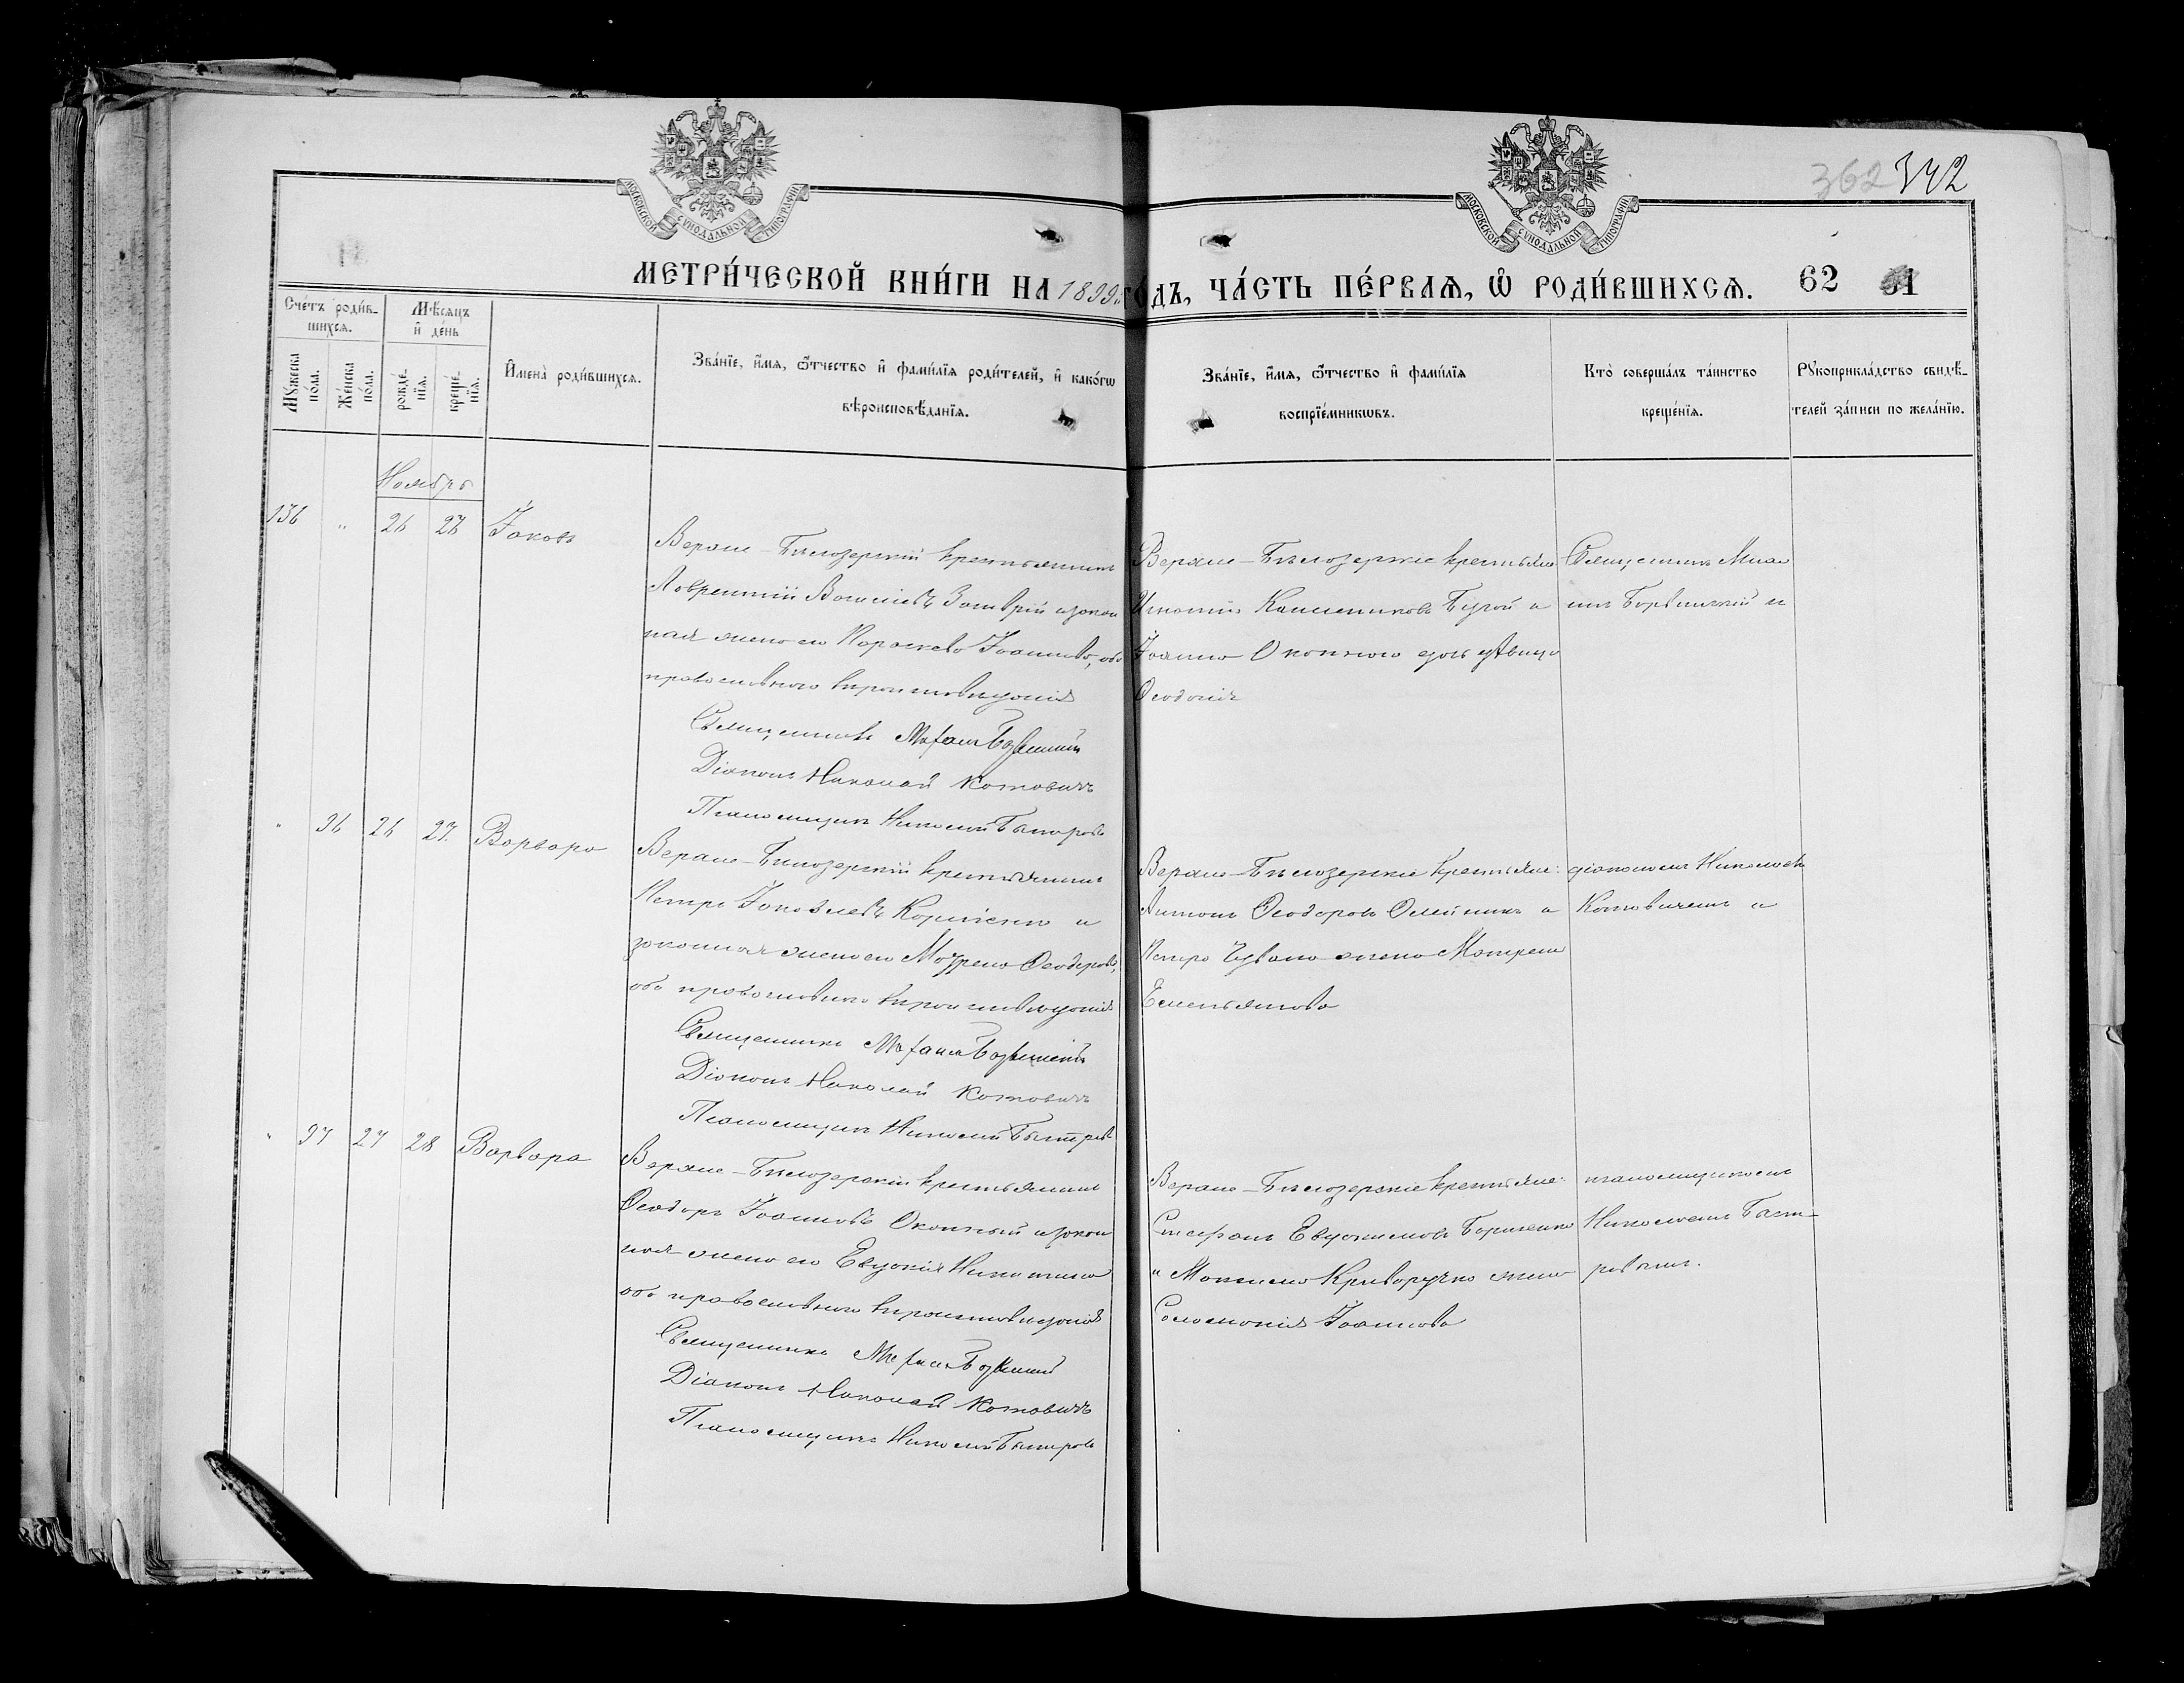 МОСКОВСКОЙ СѴНОДАЛЬНОЙ ТИПОГРАФІИ
МОСКОВСКОЙ СѴНОДАЛЬНОЙ ТИПОГРАФІИ
362 342
МЕТРИ́ЧЕСКОЙ КНИ́ГИ НА 1899 ГОДЪ, ЧА́СТЬ ПЕ́РВАЯ, Ѽ РОДИ́ВШИХСЯ. 62
Сче́тъ роди́в-
шихся.
Мѣ́сяцъ
и҆ день
Мꙋ́жеска
по́ла.
Же́нска
по́ла.
рожде́-
нїя.
креще́-
нїя.
И҆мена̀ роди́вшихся.
Зва́нїе, и҆́мя, ѻ҆́тчество и҆ фами́лїя роди́телей, и҆ како́гѡ
вѣроисповѣ́данїя.
Зва́нїе, и҆́мя, ѻ҆́тчество и҆ фами́лїя
воспрїе́мникѡвъ.
Кто̀ соверша́лъ та́инство
креще́нїя.
Рꙋкоприкла́дство свидѣ́-
телей за́писи по жела́нїю.
Ноябрь
136 „ 26 27 Іаковъ
Верхне-Бѣлозерскій крестьянинъ
Лаврентій Затврій и закон
ная жена его Параскева Іоаннова, оба
православнаго вѣроисповѣданія
Священникъ Михаилъ
Діаконъ Николай Котовичъ
Псаломщикъ Николай Быстровъ
Верхне-Бѣлозерскіе крестьяне
Игнатій и
Іоанна Окопнаго дочь дѣвица
Ѳеодосія
Священникъ Миха
илъ и
„ 96 26 27. Варвара
Верхне-Бѣлозерскій крестьянинъ
Петръ Іаковлевъ и
законная жена его Ѳеодорова,
оба православнаго вѣроисповѣданія
Священникъ Михаилъ
Діаконъ Николай Котовичъ
Псаломщикъ Николай Быстровъ
Верхне-Бѣлозерскіе крестьяне:
Антонъ Ѳеодоровъ Олейникъ и
Петра жена Матрена
Емельянова
діакономъ Николаемъ
Котовичемъ и
„ 97 27 28 Варвара
Верхне-Бѣлозерскій крестьянинъ
Ѳеодоръ Іоанновъ Окопный и закон
ная жена его Евдокія Никитина
оба православнаго вѣроисповѣданія
Священникъ Михаилъ
Діаконъ Николай Котовичъ
Псаломщикъ Николай Быстровъ
Верхне-Бѣлозерскіе крестьяне:
Стефанъ Евдокимовъ Борисенко
и Максима Криворучко жена
Соломонія Іоаннова
псаломщикомъ
Николаемъ Быст-
ровымъ.